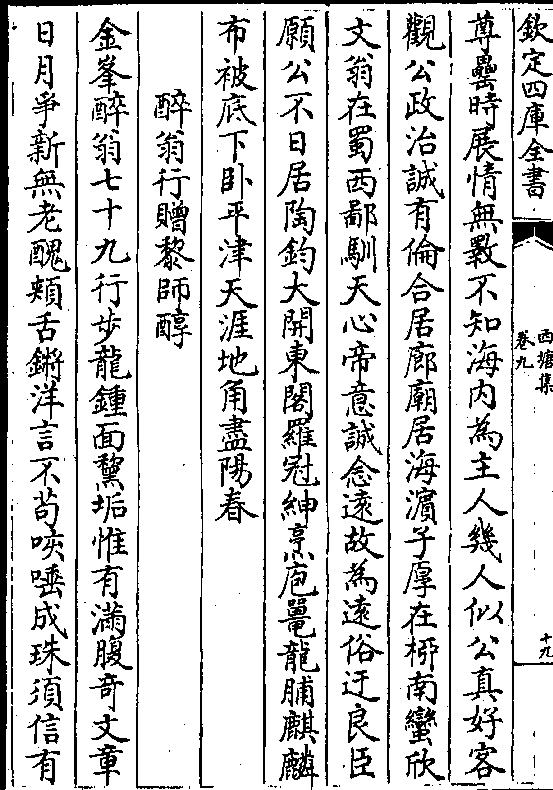 欽定四庫全書
西塘集
卷九
十九
尊罍時展情無斁不知海内為主人幾人似公真好客
觀公政治誠有倫合居廊廟居海濵子厚在栁南蠻欣
文翁在蜀西鄙馴天心帝意誠念逺故為逺俗迂良臣
願公不日居陶鈞大開東閣羅冠紳烹庖鼉龍脯麒麟
布被底下卧平津天涯地角盡陽春
醉翁行贈黎師醇
金峯醉翁七十九行步龍鍾面黧垢惟有滿腹竒文章
日月爭新無老醜頰舌鏘洋言不苟咳唾成珠須信有